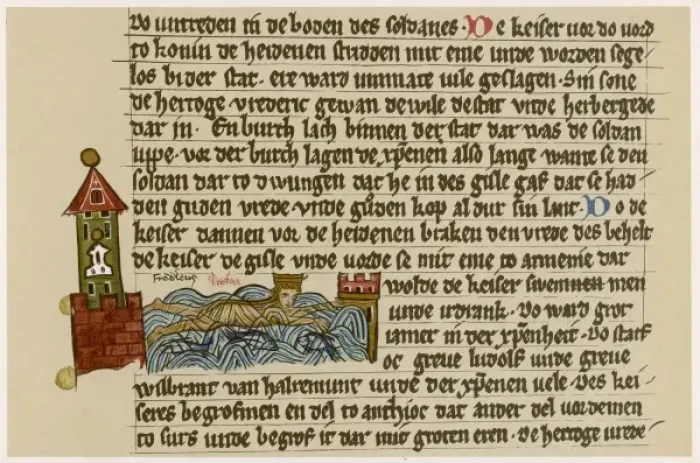 Do untreden in de boden des soldanes. De keiser vor do vord
to konin de heidenen stridden mit eme unde worden sege
los bi der stat. ere ward ummate vile geslagen. Sin sone
de hertoge vrederic gewan de wile de stat unde herbergede
dar in. En burch lach binnen der stat dar was de soldan
uppe. vor der burch lagen de xp̄enen also lange wante se den
soldan dar to dwungen dat he in des gisle gaf dat se had
den guden vrede. unde guden kop al dur sin lant. Do de
keiser dannen vor de heidenen braken den vrede des behelt
de keiser de gisle unde vorde se mit eme to armenie dar
wolde de keiser swemmen men
unde udrank. Do ward grot
iamer in der xp̄enheit. Do starf
oc greve ludolf unde greve
wilbrant van halremunt unde der xp̄enen vele. Des kei
seres begrofmen en del to anthioc dat ander del vordemen
to surs unde begrof it dar mit groten eren. de hertoge vrede